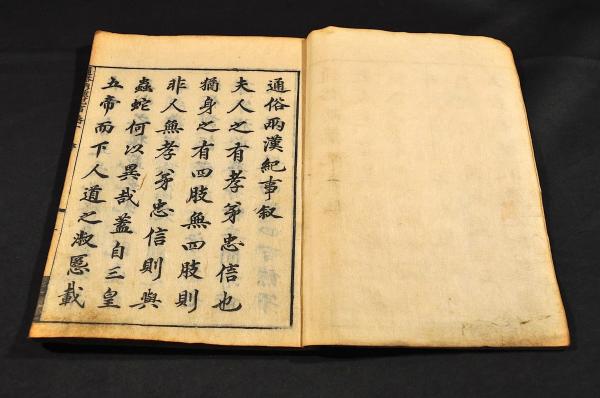 通俗兩漢紀事叙
夫人之有孝弟忠信也
猶身之有四肢無四肢則
非人無孝弟忠信則與
蟲蛇何以異哉蓋自三皇
五帝而下人道之淑慝載